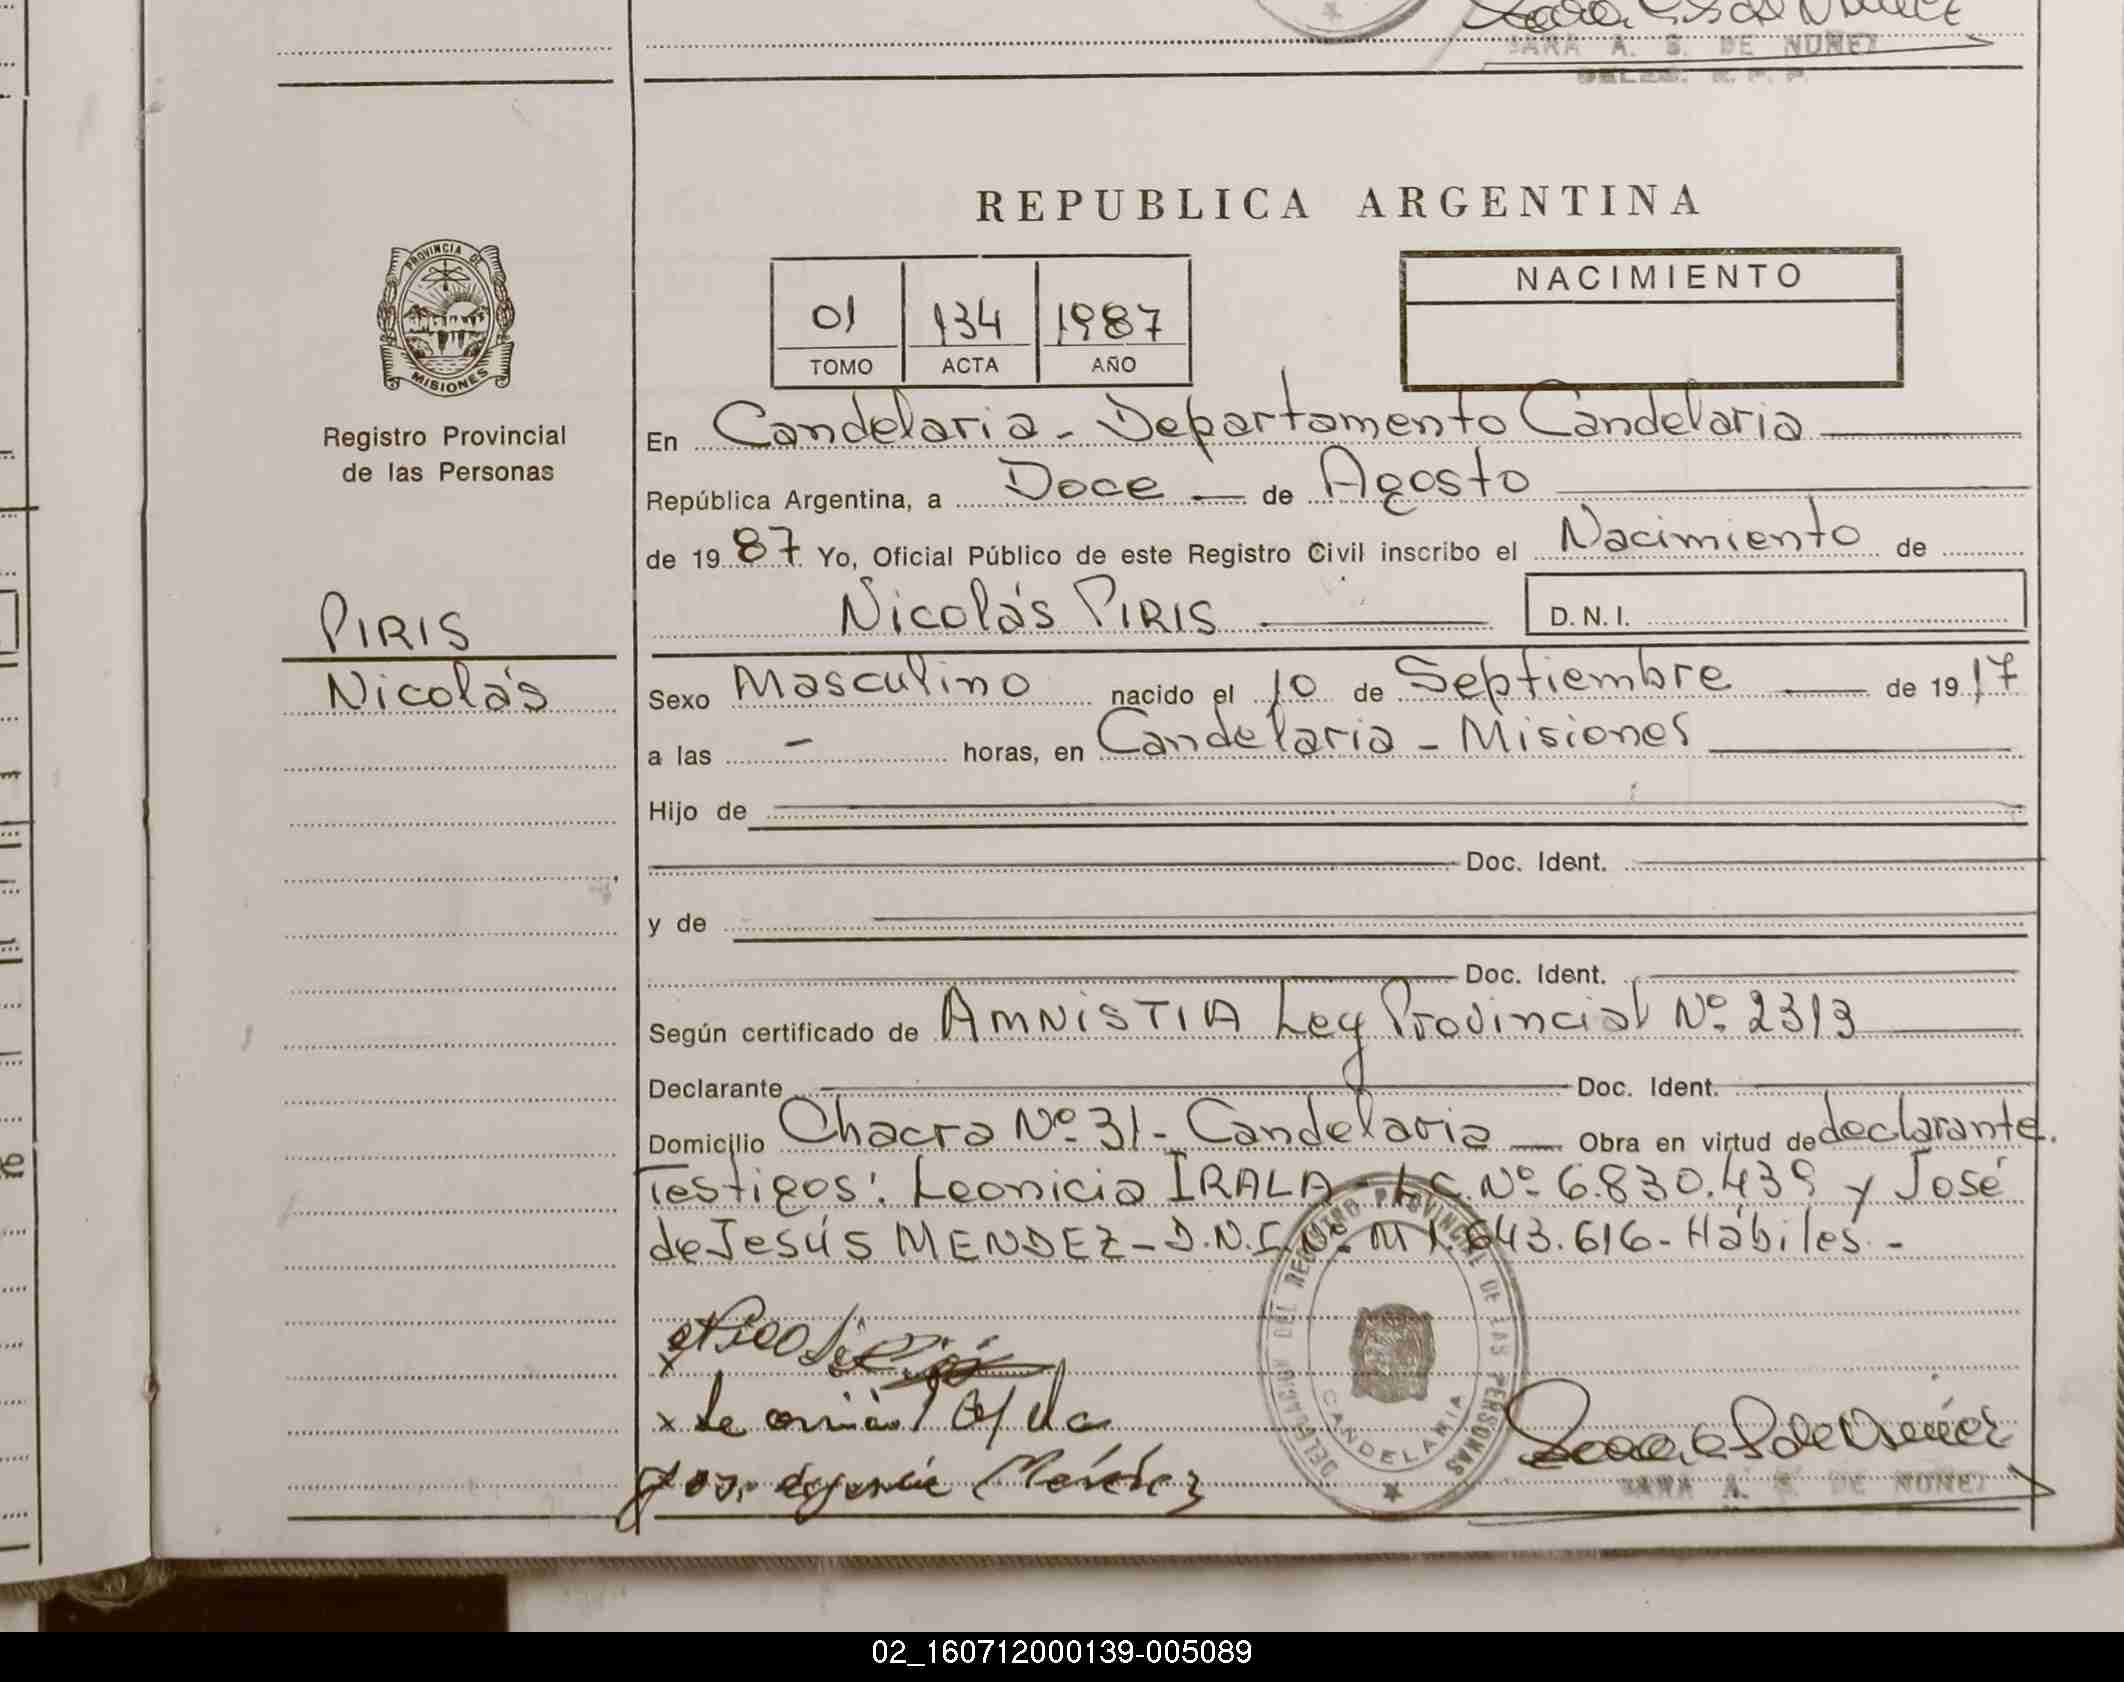 SARA A. S. DE NUÑEZ
DELEG. R. P. P.
REPUBLICA ARGENTINA
PROVINCIA DE
MISIONES
Registro Provincial
de las Personas
01 134 1987
TOMO ACTA AÑO
NACIMIENTO
En Candelaria - Departamento Candelaria
República Argentina, a Doce de Agosto
de 1987. Yo, Oficial Público de este Registro Civil inscribo el Nacimiento de
Nicolás PIRIS D.N.I.
PIRIS
Nicolás
Sexo Masculino nacido el 10 de Septiembre de 1917
a las - horas, en Candelaria - Misiones
Hijo de
Doc. Ident.
y de
Doc. Ident.
Según certificado de AMNiSTIA Ley Provincial Nº 2313
Declarante Doc. Ident.
Domicilio Chacra Nº 31 - Candelaria Obra en virtud de declarante.
Testigos: Leonicia IRALA - L.C. Nº 6.830.439 y José
de Jesús MENDEZ - D.N.I. Nº M 1.643.616 - Hábiles. -
DELEGACION DEL REGISTRO PROVINCIAL DE LAS PERSONAS
CANDELARIA
SARA A. S. DE NUÑEZ
02_160712000139-005089